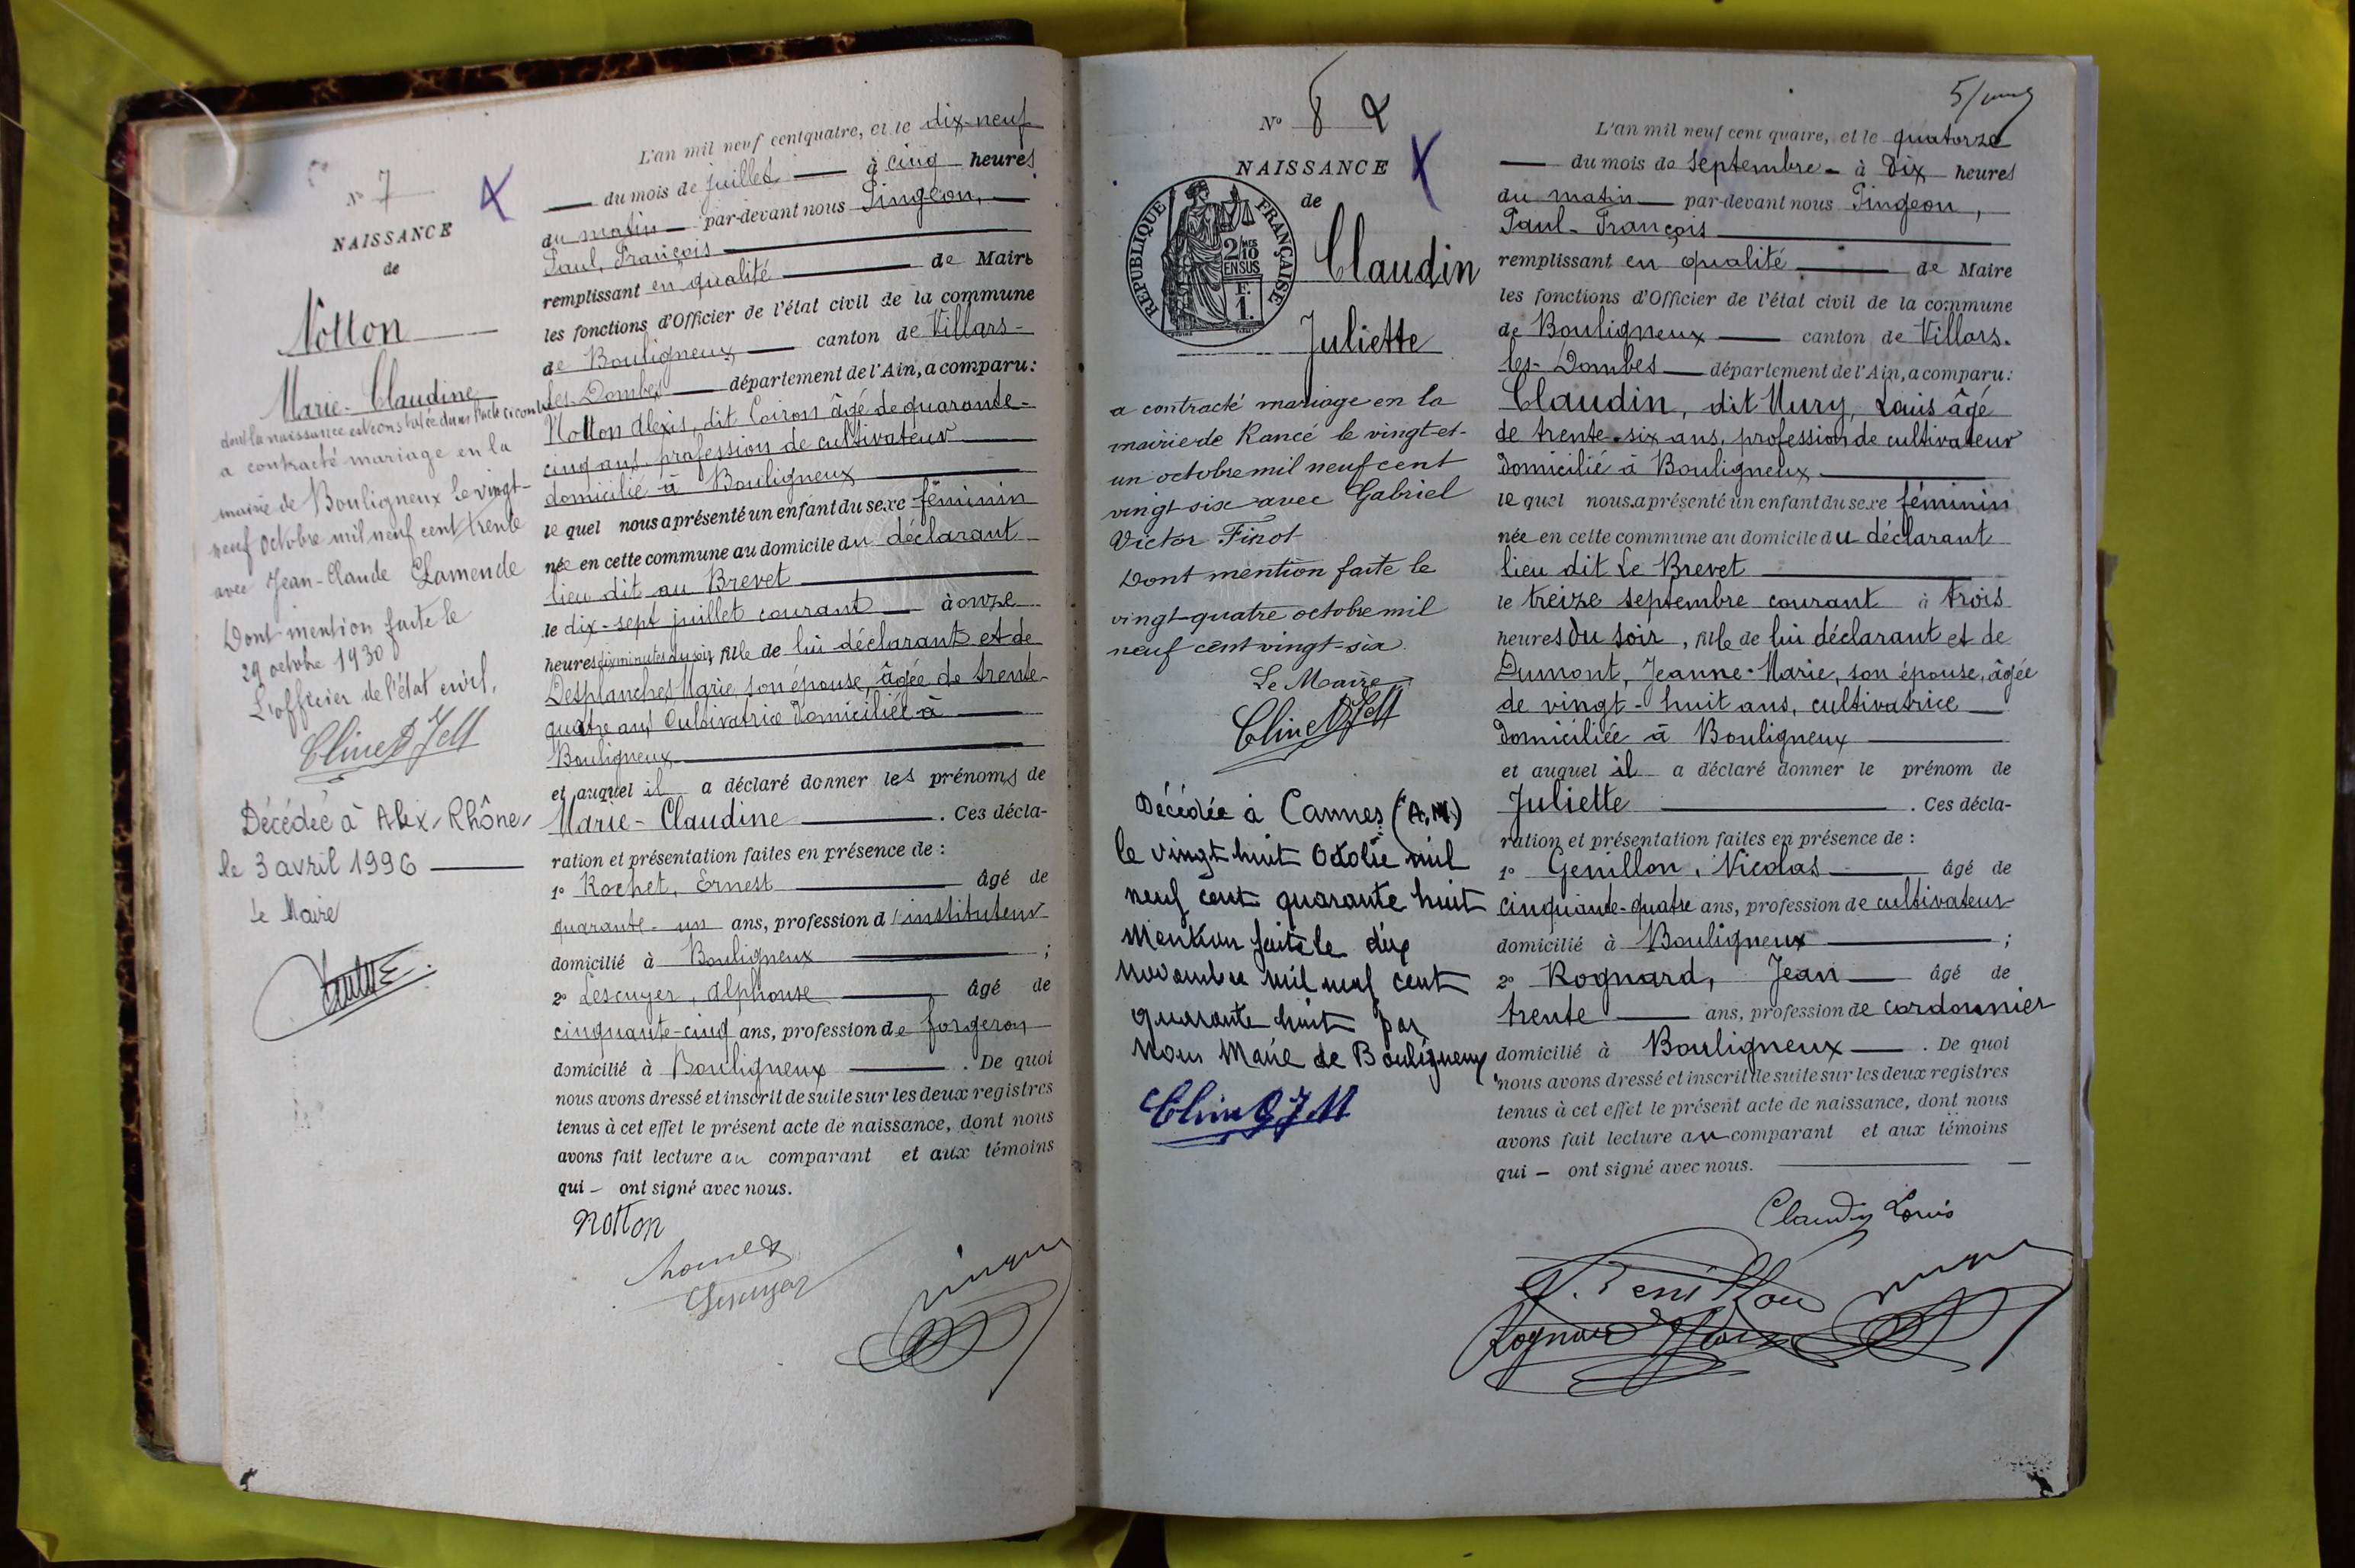 N° 7
NAISSANCE
de
Notton
Marie-Claudine
dont la naissance est constatée dans l'acte ci contre
a contracté mariage en la
mairie de Bouligneux le vingt-
neuf octobre mil neuf cent trente
avec Jean-Claude Clamende
Dont mention faite le
29 octobre 1930
L'officier de l'état civil,
Décédée à Alix-Rhône-
le 3 avril 1996
Le Maire
L'an mil neuf cent quatre, et le dix-neuf
du mois de juillet à cinq heures
du matin par-devant nous Pingeon,
Paul, François
remplissant en qualité de Maire
les fonctions d'Officier de l'état civil de la commune
de Bouligneux canton de Villars-
les-Dombes département de l'Ain, a comparu:
Notton Alexis, dit Coiron âgé de quarante-
cinq ans, profession de cultivateur
domicilié à Bouligneux
le quel nous a présenté un enfant du sexe féminin
née en cette commune au domicile du déclarant
lieu dit au Brevet
le dix-sept juillet courant à onze
heures dix minutes du soir, fille de lui déclarant et de
Desplanches Marie, son épouse, âgée de trente-
quatre ans, Cultivatrice domiciliée à
Bouligneux
et auquel il a déclaré donner les prénoms de
Marie-Claudine. Ces décla-
ration et présentation faites en présence de :
1° Rochet, Ernest âgé de
quarante-un ans, profession d'instituteur
domicilié à Bouligneux ;
2° Lescuyer, Alphonse âgé de
cinquante-cinq ans, profession de forgeron
domicilié à Bouligneux. De quoi
nous avons dressé et inscrit de suite sur les deux registres
tenus à cet effet le présent acte de naissance, dont nous
avons fait lecture au comparant et aux témoins
qui – ont signé avec nous.
Notton
Lescuyer
5/
N° 8
NAISSANCE
de
REPUBLIQUE FRANÇAISE
2/10 MES
EN SUS
F.
1.
Claudin
Juliette
a contracté mariage en la
mairie de Rancé le vingt-et-
un octobre mil neuf cent
vingt-six avec Gabriel
Victor Finot
Dont mention faite le
vingt-quatre octobre mil
neuf cent vingt-six.
Le Maire
Décédée à Cannes (A.M.)
le vingt huit Octobre mil
neuf cent quarante huit
Mention faite le dix
Novembre mil neuf cent
quarante huit par
Nous Maire de Bouligneux
L'an mil neuf cent quatre, et le quatorze
du mois de Septembre - à Dix heures
du matin par-devant nous Pingeon,
Paul-François
remplissant en qualité de Maire
les fonctions d'Officier de l'état civil de la commune
de Bouligneux canton de Villars-
les-Dombes département de l'Ain, a comparu:
Claudin, dit Mury, Louis âgé
de trente-six ans, profession de cultivateur
domicilié à Bouligneux
le quel nous a présenté un enfant du sexe féminin
née en cette commune au domicile du déclarant
lieu dit Le Brevet
le treize septembre courant à trois
heures du soir, fille de lui déclarant et de
Dumont, Jeanne-Marie, son épouse, âgée
de vingt-huit ans, cultivatrice
domiciliée à Bouligneux
et auquel il a déclaré donner le prénom de
Juliette. Ces décla-
ration et présentation faites en présence de :
1° Genillon, Nicolas âgé de
cinquante-quatre ans, profession de cultivateur
domicilié à Bouligneux ;
2° Rognard, Jean âgé de
trente ans, profession de cordonnier
domicilié à Bouligneux. De quoi
nous avons dressé et inscrit de suite sur les deux registres
tenus à cet effet le présent acte de naissance, dont nous
avons fait lecture au comparant et aux témoins
qui – ont signé avec nous.
Claudin Louis